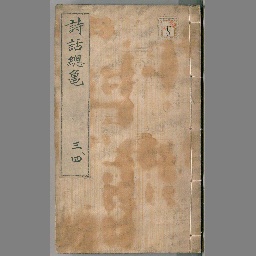 詩話總龜
三、四